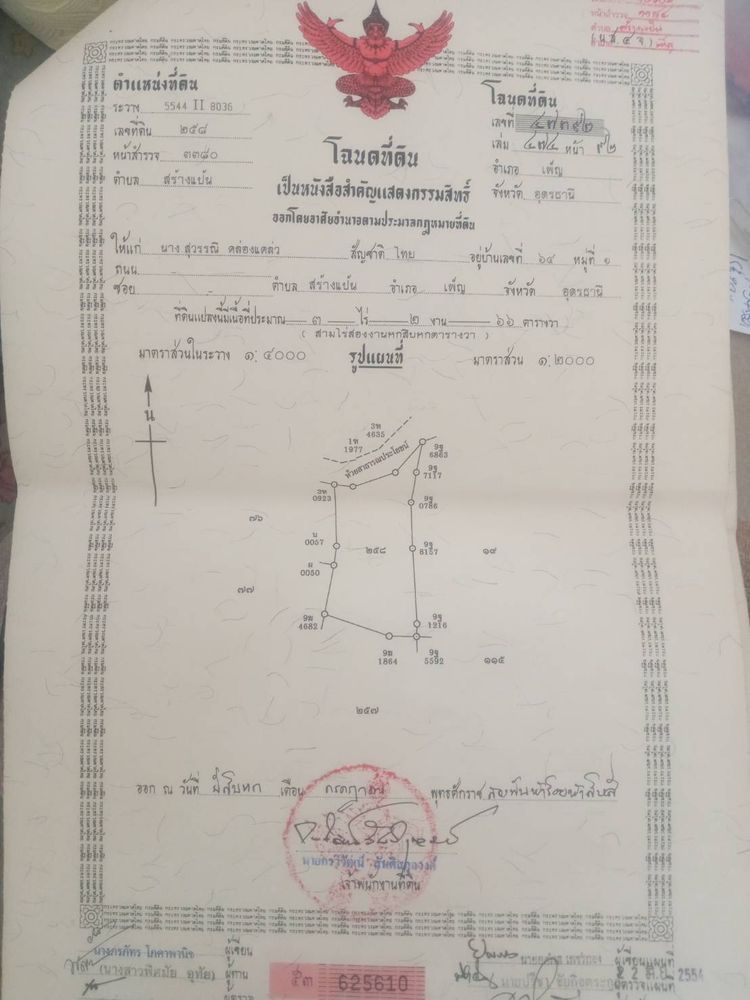 ตำแหน่งที่ดิน
ระวาง 5544 II 8036
เลขที่ดิน ๒๕๘
หน้าสำรวจ ๓๓๘๐
ตำบล สร้างแป้น
โฉนดที่ดิน
เลขที่ ๔๗๓๙๒
เล่ม ๔๗๔ หน้า ๙๒
อำเภอ เพ็ญ
จังหวัด อุดรธานี
โฉนดที่ดิน
เป็นหนังสือสำคัญแสดงกรรมสิทธิ์
ออกโดยอาศัยอำนาจตามประมวลกฎหมายที่ดิน
ให้แก่ นาง สุวรรณี คล่องแคล่ว สัญชาติ ไทย อยู่บ้านเลขที่ ๖๔ หมู่ที่ ๑
ถนน
ซอย ตำบล สร้างแป้น อำเภอ เพ็ญ จังหวัด อุดรธานี
ที่ดินแปลงนี้มีเนื้อที่ประมาณ ๓ ไร่ ๒ งาน ๖๖ ตารางวา
(สามไร่สองงานหกสิบหกตารางวา)
มาตราส่วนในระวาง ๑:๔๐๐๐ รูปแผนที่ มาตราส่วน ๑:๒๐๐๐
น
3ห
4635
1ห
1977
ห้วยสาธารณประโยชน์
9ฐ
6863
9ฐ
7117
3ห
0923
9ฐ
0786
๗๖
น
0057
๒๕๘
9ฐ
8157
๑๙
ผ
0050
๗๗
9ฆ
4682
9ฐ
1216
9ฆ
1864
9ฐ
5592
๑๑๕
๒๕๗
ออก ณ วันที่ ยี่สิบหก เดือน กรกฎาคม พุทธศักราช สองพันห้าร้อยห้าสิบสี่
เจ้าพนักงานที่ดิน
ผู้เขียน
ผู้ทาน
ผู้ตรวจ
625610
ผู้เขียนแผนที่
ผู้ตรวจแผนที่
2554